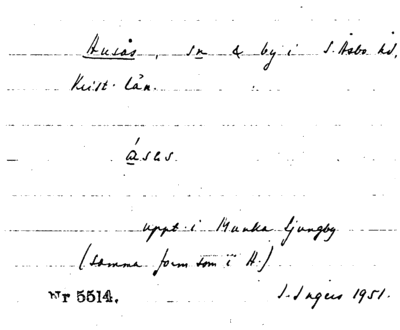 Ausås, sn & by i S. Åsbo hd,
Krist. län.
ásas.
uppt. i Munka Ljungby
(samma form som i H.)
Nr 5514. I. Ingers 1951.